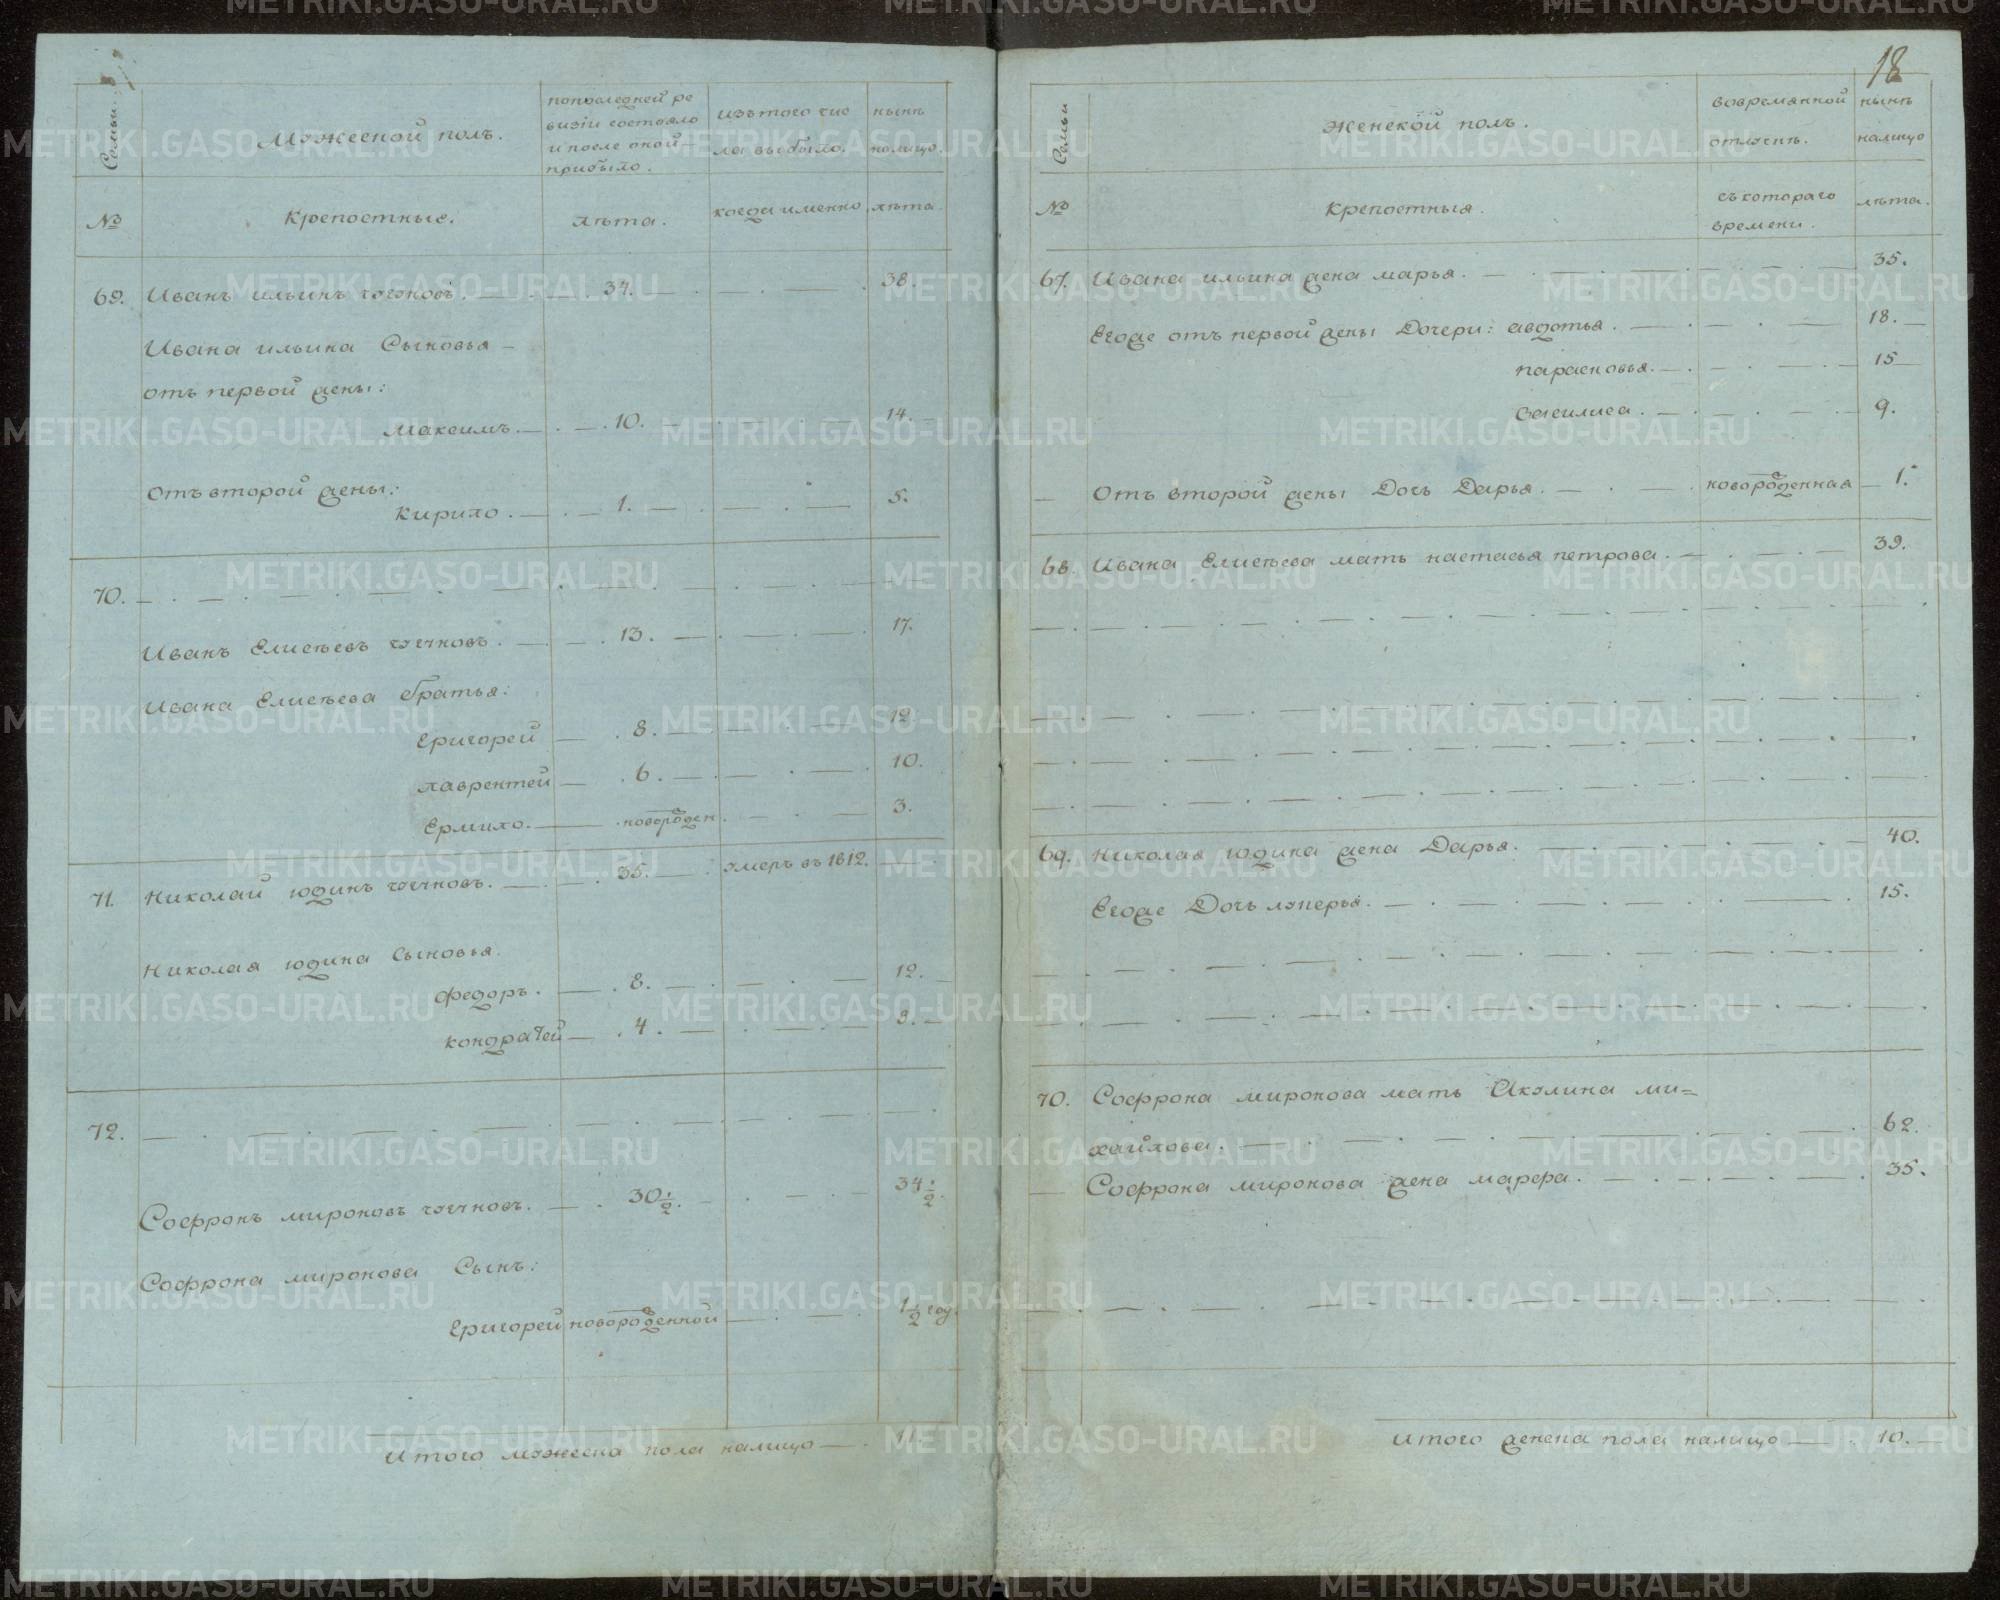 18
Семьи
Мужеской полъ.
попоследней ре
визіи состояло
и после оной
прибыло.
изътого чис
ла выбыло.
нынѣ
налицо.
№
Крепостные.
лѣта.
когда именно
лѣта.
69. Иванъ ильинъ 34. 38.
Ивана ильина Сыновья
отъ первой жены:
максимъ. 10. 14.
Отъ второй жены:
кирило. 1. 5.
70.
Иванъ Елисѣевъ 13. 17.
Ивана Елисѣева братья:
Григорей 8. 12
лаврентей 6. 10.
Ермило. новорожден. 3.
71. Николай юдинъ 35. умеръ въ 1812.
Николая юдина Сыновья.
федоръ. 8. 12.
кондратей 4. 8.
72.
Софронъ мироновъ 30 1/2. 34 1/2.
Софрона миронова Сынъ:
Григорей новорожденной 1 1/2 год.
Итого мужеска пола налицо 11.
Семьи
Женской полъ.
вовременной
отлучкѣ.
нынѣ
налицо
№
Крепостныя.
съкотораго
времени.
лѣта.
67. Ивана ильина жена марья. 35.
Егоже отъ первой жены Дочери: авдотья. 18.
парасковья. 15
Василиса. 9.
Отъ второй жены Дочь Дарья. новорожденная 1.
68. Ивана Елисѣева мать настасья петрова. 39.
69. Николая юдина жена Дарья. 40.
Егоже Дочь лукерья. 15.
70. Софрона миронова мать Акулина ми=
хайлова. 62.
Софрона миронова жена марфа. 35.
Итого женска пола налицо 10.
METRIKI.GASO-URAL.RU